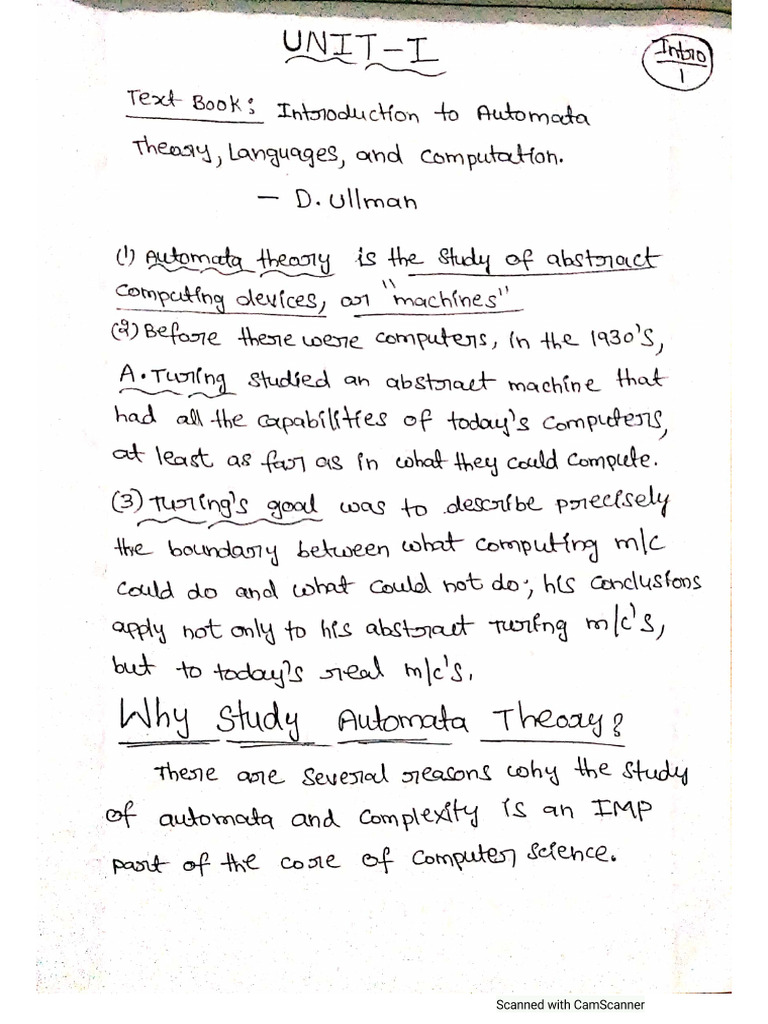 UNIT-I
Intro
1
Text Book: Introduction to Automata
Theory, Languages, and Computation.
— D. Ullman
(1) Automata theory is the study of abstract
computing devices, or "machines"
(2) Before there were computers, in the 1930's,
A. Turing studied an abstract machine that
had all the capabilities of today's computers,
at least as far as in what they could compute.
(3) Turing's goal was to describe precisely
the boundary between what computing m/c
could do and what could not do; his conclusions
apply not only to his abstract Turing m/c's,
but to today's real m/c's.
Why Study Automata Theory?
There are several reasons why the study
of automata and complexity is an IMP
part of the core of Computer Science.
Scanned with CamScanner